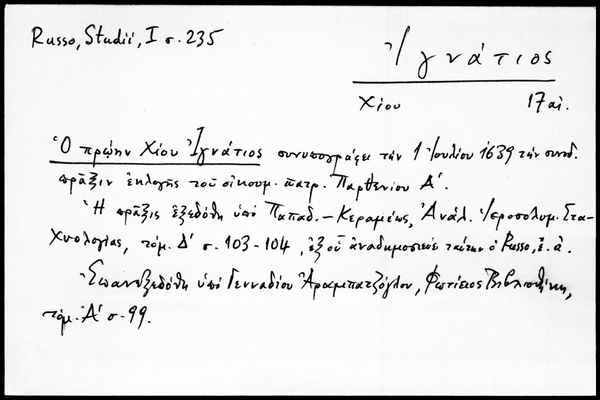 Russo, Studii, I σ. 235
Ἰγνάτιος
Χίου 17 αἰ.
Ὁ πρῴην Χίου Ἰγνάτιος συνυπογράφει τὴν 1 Ἰουλίου 1639 τὴν συνοδ.
πρᾶξιν ἐκλογῆς τοῦ οἰκουμ. πατρ. Παρθενίου Α΄.
Ἡ πρᾶξις ἐξεδόθη ὑπὸ Παπαδ.-Κεραμέως, Ἀνάλ. Ἱεροσολυμ. Στα-
χυολογίας, τόμ. Δ΄ σ. 103-104, ἐξ οὗ ἀναδημοσιεύει ταύτην ὁ Russo, ἔ. ἀ.
Ἐπανεξεδόθη ὑπὸ Γενναδίου Ἀραμπατζόγλου, Φωτίειος Βιβλιοθήκη,
τόμ. Α΄ σ. 99.